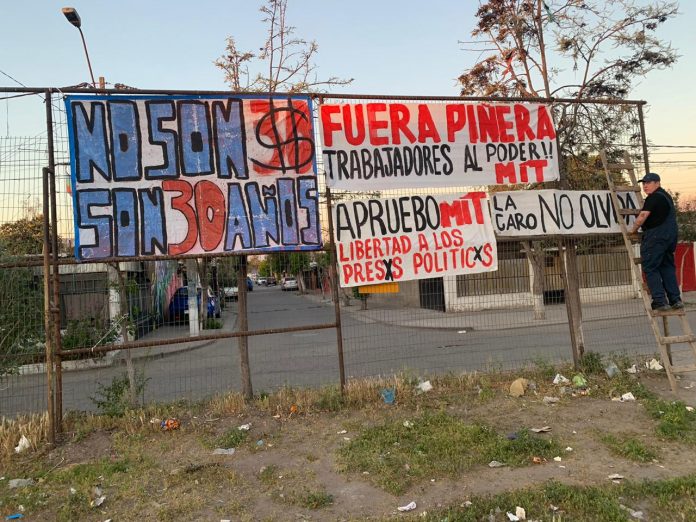 NO SON $30
SON 30 AÑOS
FUERA PIÑERA
TRABAJADORES AL PODER!!
MIT
APRUEBO MIT
LIBERTAD A LOS
PRESXS POLITICXS
LA
CARO NO OLVIDA